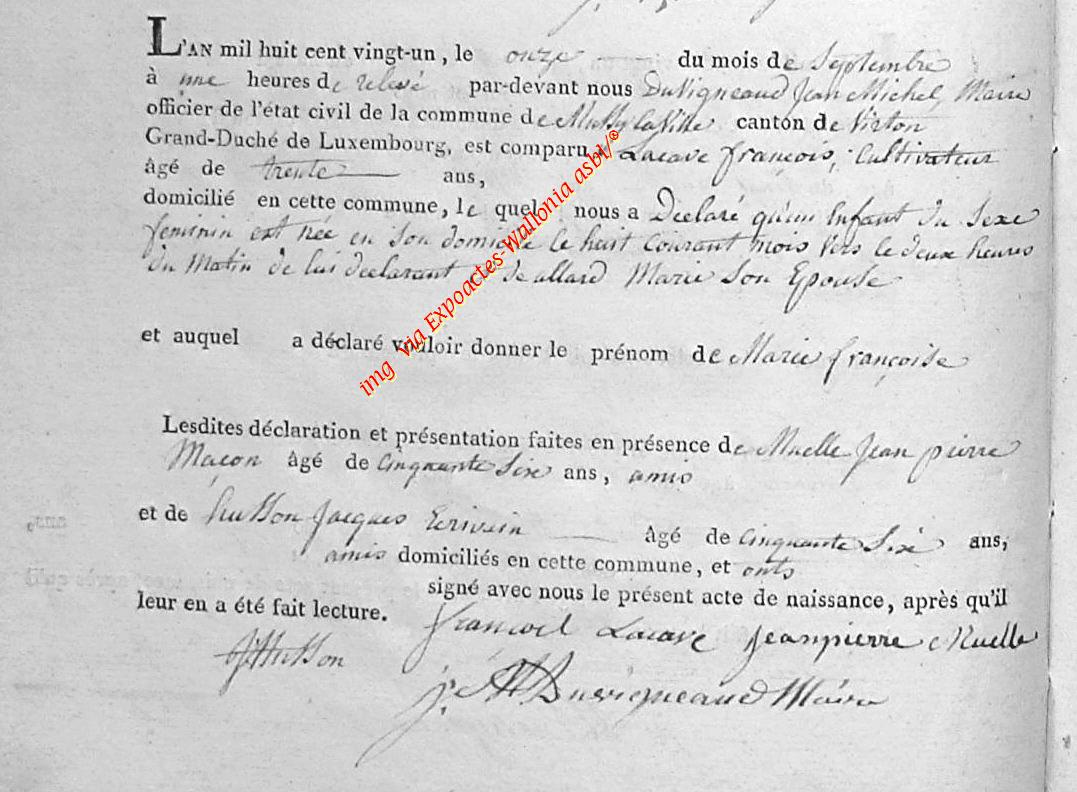 L'AN mil huit cent vingt-un, le onze du mois de Septembre
à une heures de relevé par-devant nous Duvigneaud Jean Michel, Maire
officier de l'état civil de la commune de Mussy la Ville canton de Virton
Grand-Duché de Luxembourg, est comparu Lacave françois, Cultivateur
âgé de trente ans,
domicilié en cette commune, le quel nous a Déclaré qu'un Enfant du Sexe
féminin est née en Son domicile le huit Courant mois vers le deux heures
du Matin de lui declarant et de allard Marie Son Epouse
et auquel a déclaré vouloir donner le prénom de Marie françoise
Lesdites déclaration et présentation faites en présence de Muelle Jean pierre
Maçon âgé de Cinquante Six ans, amis
et de husson Jacques Ecrivein âgé de Cinquante Six ans,
amis domiciliés en cette commune, et onts
signé avec nous le présent acte de naissance, après qu'il
leur en a été fait lecture.
francois Lacave Jeanpierre Muelle
JHusson
j. M Duvigneaud Maire
img via Expoactes-Wallonia asbl/®